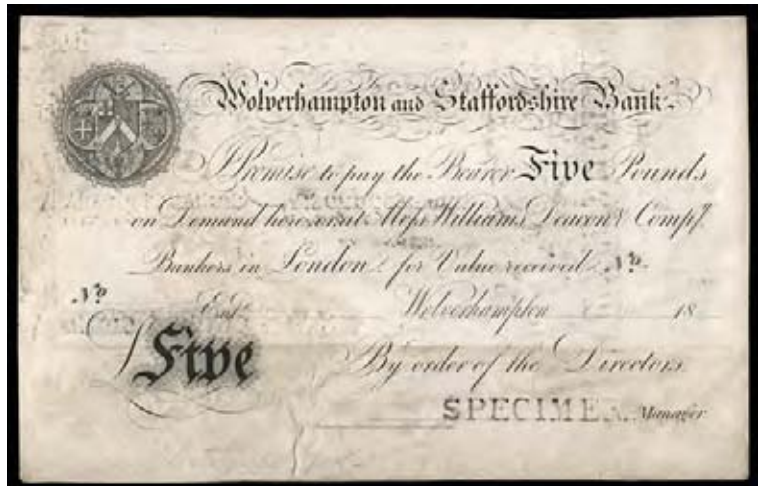 Wolverhampton and Staffordshire Bank.
I Promise to pay the Bearer Five Pounds
on Demand here or at Messrs Williams Deacon & Compy.
Bankers in London for Value received No.
No.
Entd. Wolverhampton 18
Five By order of the Directors.
SPECIMEN. Manager